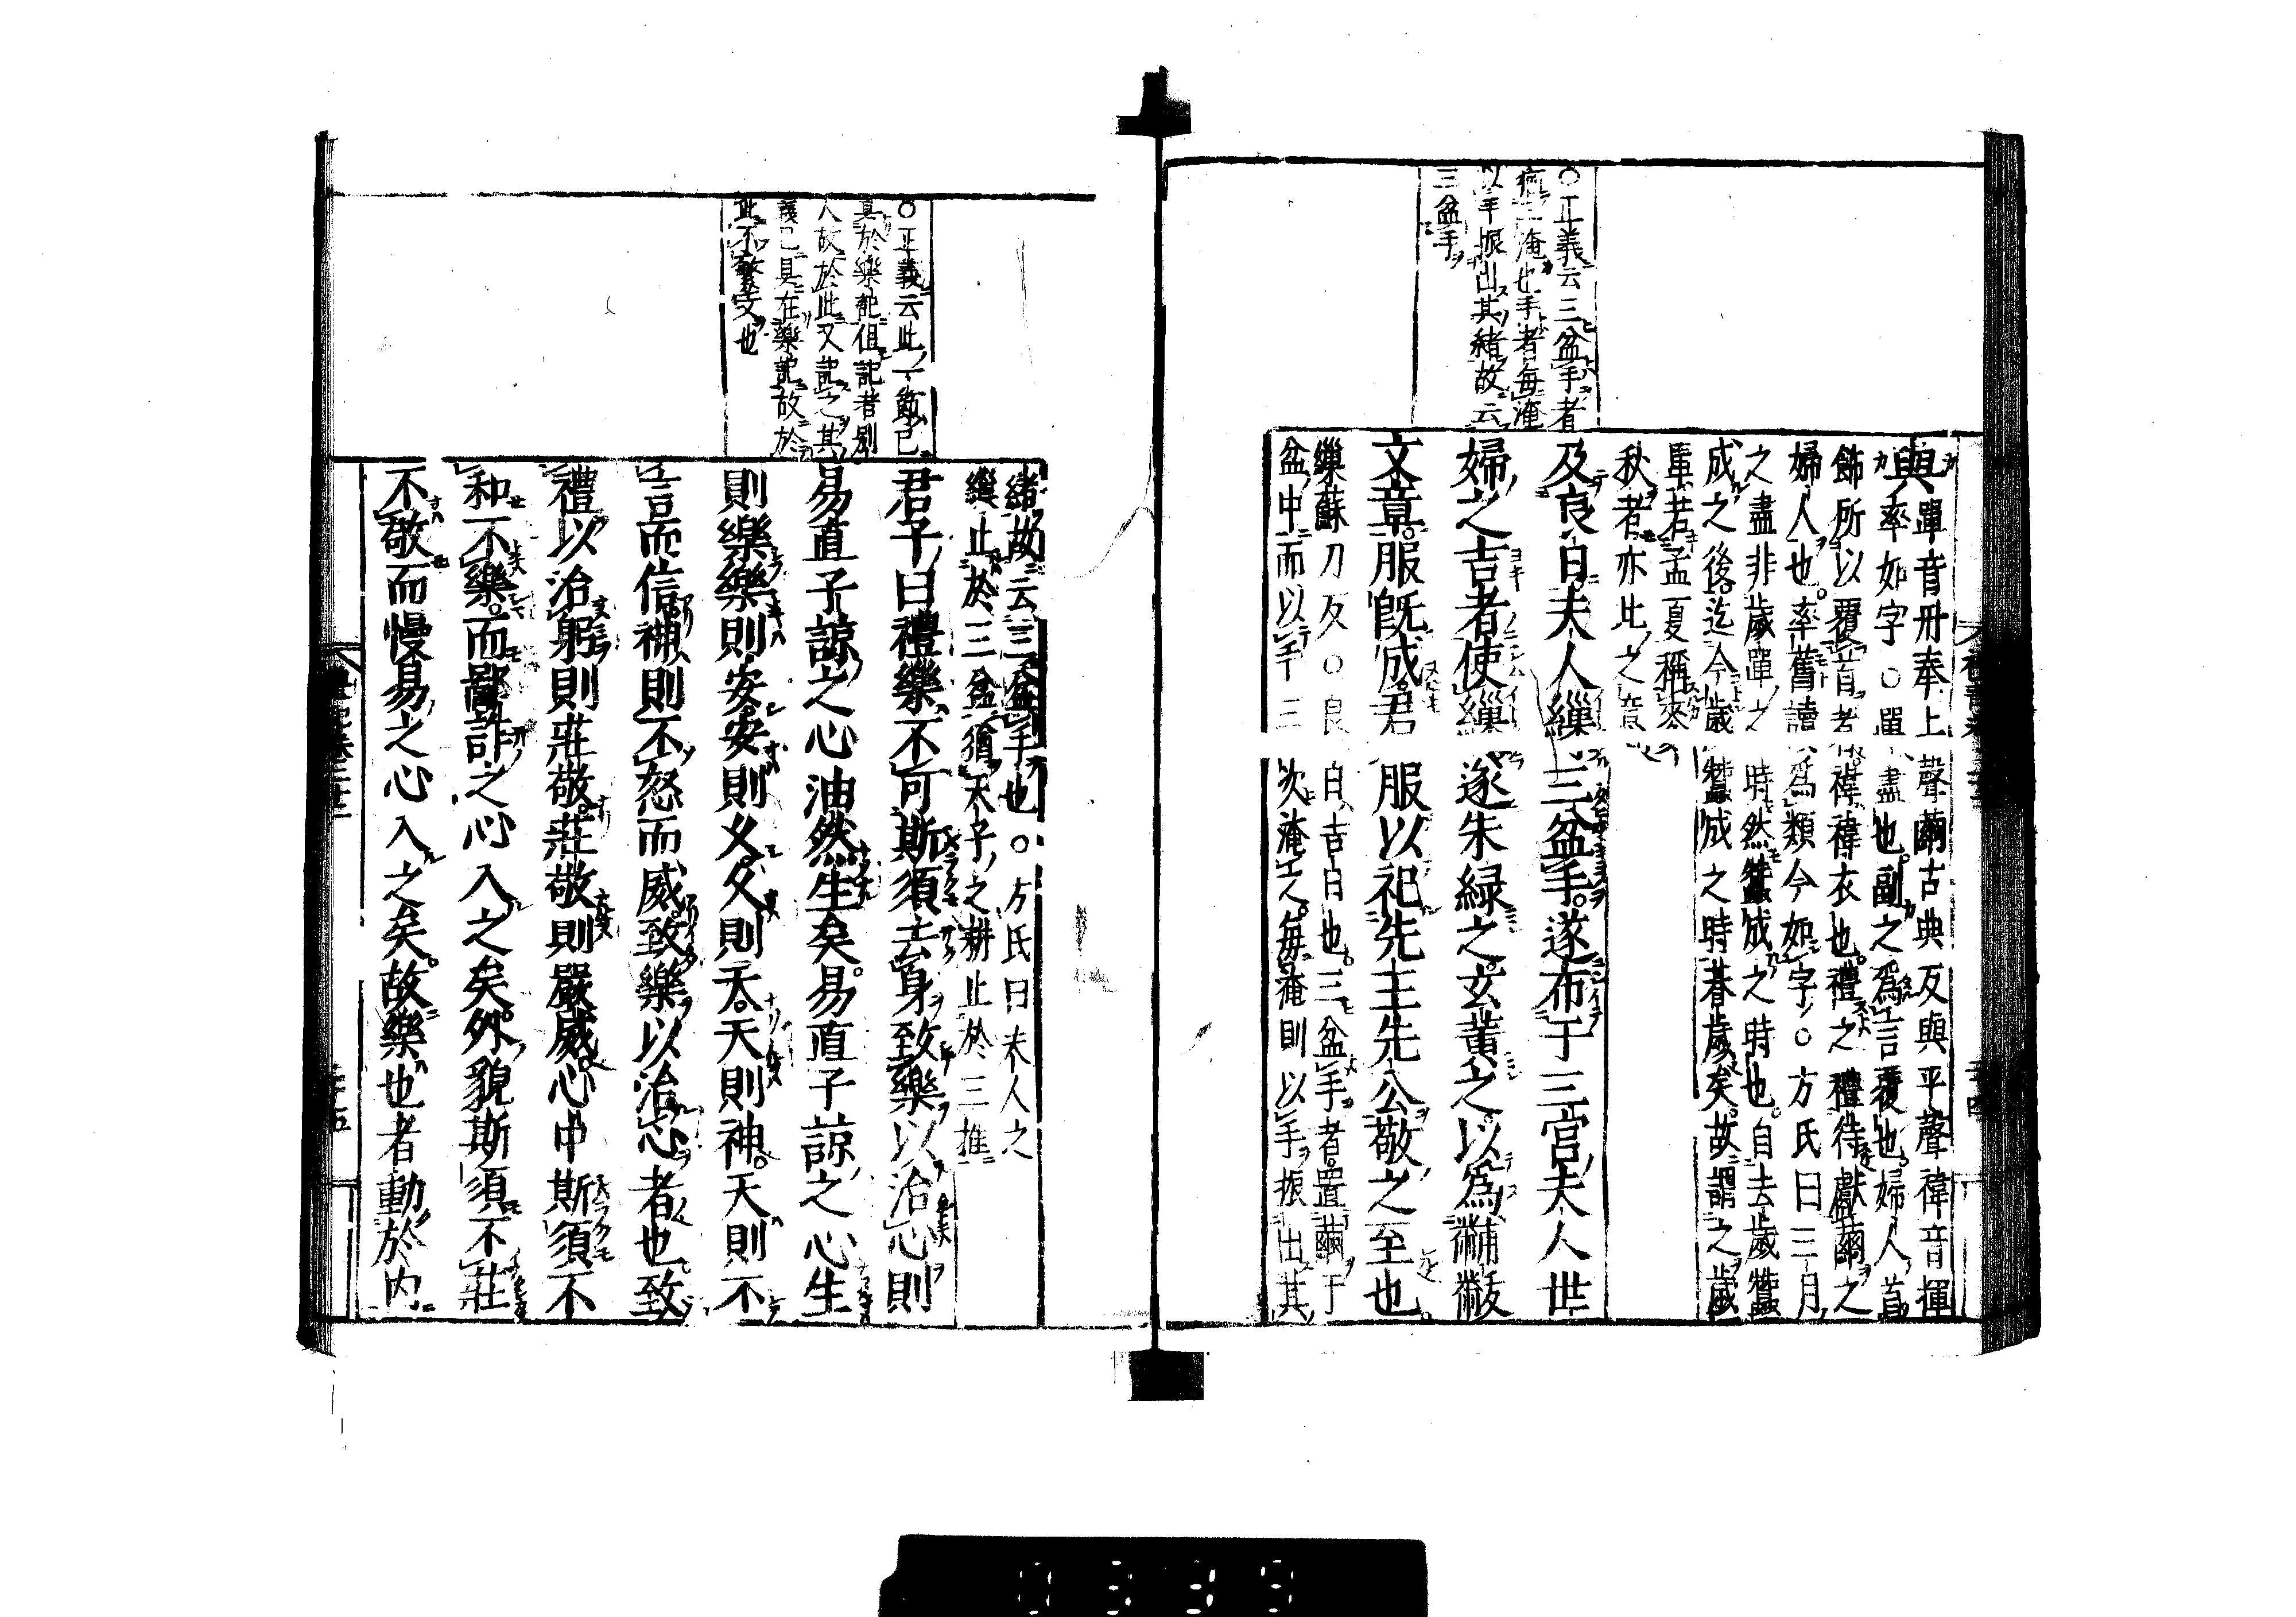 ○正義云三盆手者
淹也手者每淹
以手振出其緒故云
三盆手
與
單音丹奉上聲繭古典反與平聲褘音揮
率如字○單盡也副之爲言覆也婦人首
飾所以覆首者褘褘衣也禮之禮待獻繭之
婦人也率舊讀爲類今如字○方氏曰三月
之盡非歲單之時然蠶成之時也自去歲蠶
成之後迄今歲蠶成之時朞歲矣故謂之歲
單若孟夏稱麥
秋者亦此之意
及良日夫人繅三盆手遂布于三宮夫人世
婦之吉者使繅遂朱綠之玄黃之以爲黼黻
文章服旣成君服以祀先王先公敬之至也
繅蘇刀反○良日吉日也三盆手者置繭于
盆中而以手三次淹之每淹則以手振出其
○正義云此一節已
具於樂記但記者別
人故於此又記之其
義已具在樂記故於
此不繁文也
緒故云三盆手也○方氏曰夫人之
繅止於三盆猶天子之耕止於三推
君子曰禮樂不可斯須去身致樂以治心則
易直子諒之心油然生矣易直子諒之心生
則樂樂則安安則久久則天天則神天則不
言而信神則不怒而威致樂以治心者也致
禮以治躬則莊敬莊敬則嚴威心中斯須不
和不樂而鄙詐之心入之矣外貌斯須不莊
不敬而慢易之心入之矣故樂也者動於內